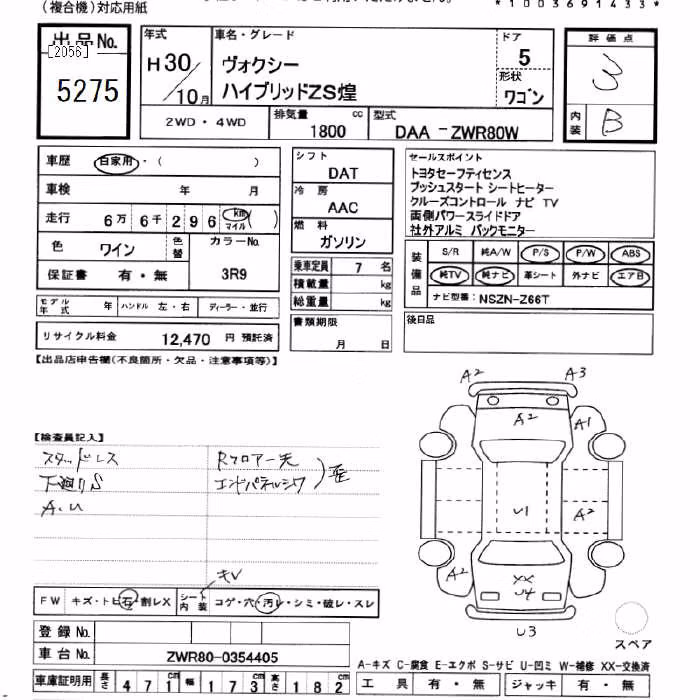 (複合機)対応用紙
*1003691433*
出品No.
[2056]
5275
年式
H30/10月
車名・グレード
ヴォクシー
ハイブリッドZS煌
ドア
5
形状
ワゴン
評価点
3
内装
B
2WD・4WD
排気量
1800 cc
型式
DAA-ZWR80W
車歴 自家用・( )
車検 年 月
走行 6万 6千 2 9 6 km マイル ( )
色 ワイン 色替 カラーNo. 3R9
保証書 有・無
モデル年式 年 ハンドル 左・右 ディーラー・並行
リサイクル料金 12,470 円 預託済
シフト
DAT
冷房
AAC
燃料
ガソリン
乗車定員 7 名
積載量 kg
総重量 kg
書類期限
月 日
セールスポイント
トヨタセーフティセンス
プッシュスタート シートヒーター
クルーズコントロール ナビ TV
両側パワースライドドア
社外アルミ バックモニター
装備品
S/R 純A/W P/S P/W ABS
純TV 純ナビ 革シート 外ナビ エアB
ナビ型番: NSZN-Z66T
後日品
【出品店申告欄(不良箇所・欠品・注意事項等)】
【検査員記入】
スタッドレス
下廻りS
A.U
Rフロアー先
エンドパネルシワ
歪
キレ
FW キズ・トビ石・割レX シート内装 コゲ・穴・汚レ・シミ・破レ・スレ
登録No.
車台No. ZWR80-0354405
車庫証明用 長さ 471 幅 173 高さ 182
A2
A3
A2
A1
U1
A2
A2
XX
U4
U3
スペア
A-キズ C-腐食 E-エクボ S-サビ U-凹ミ W-補修 XX-交換済
工具 有・無 ジャッキ 有・無